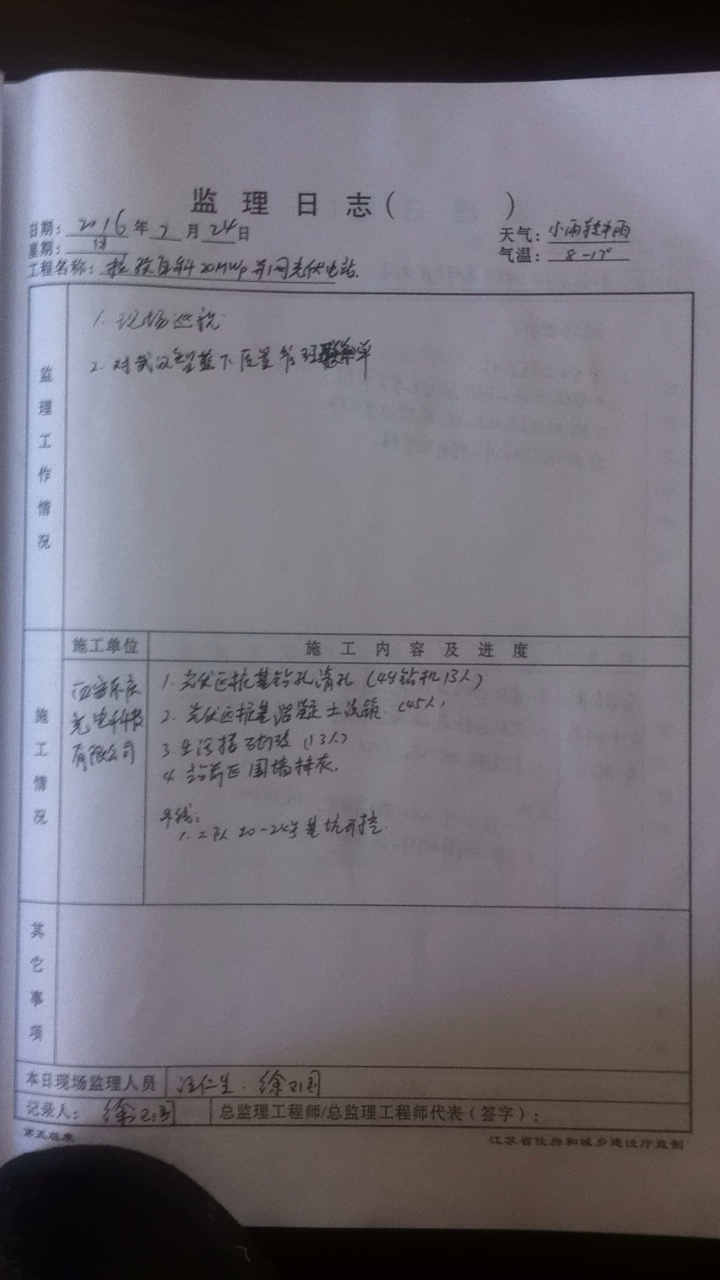 监 理 日 志 (          )
日期: 2016 年 月 24 日
天气: 小雨转中雨
星期:
气温: 8-17°
工程名称: 20MWp并网光伏电站.
监理工作情况
1. 现场巡视
2. 对武汉
施工情况
施工单位
施 工 内 容 及 进 度
西安
光电科技
有限公司
1. 光伏区桩基钻孔清孔 (4台钻机13人)
2. 光伏区桩基混凝土浇筑. (45人)
3. 生活 (13人)
4. 围墙抹灰.
外线:
1. 二队 20-24号基坑开挖.
其它事项
本日现场监理人员
汪仁生. 徐卫国
记录人: 徐卫国
总监理工程师/总监理工程师代表(签字):
第五版表
江苏省住房和城乡建设厅监制